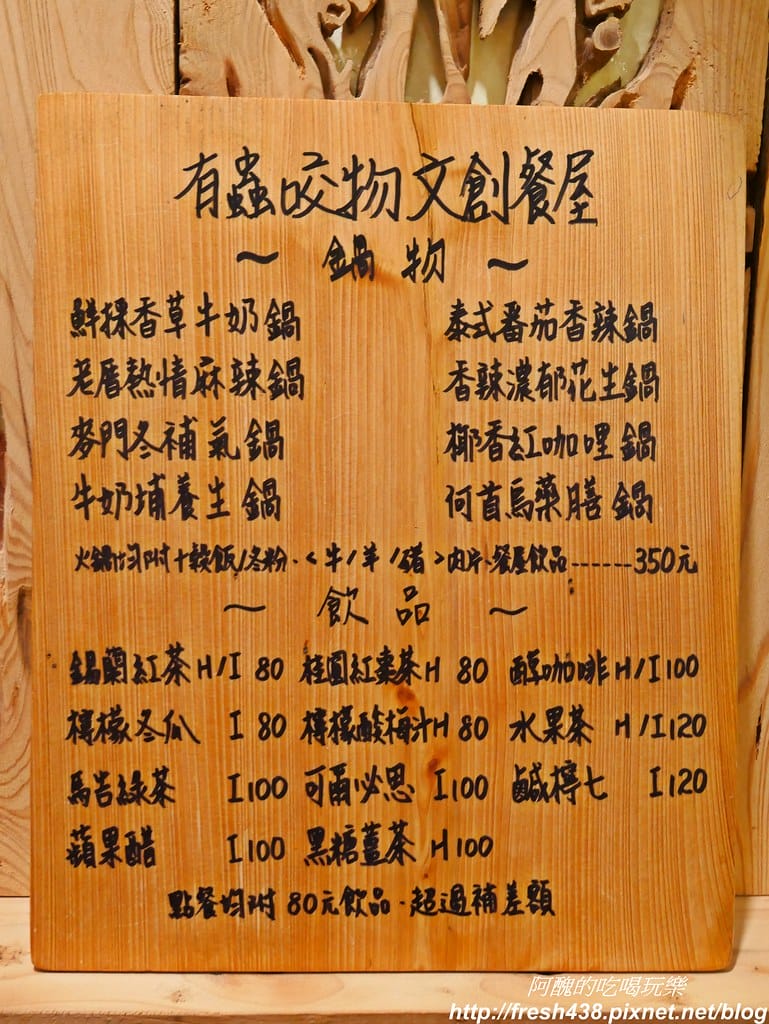 有蟲咬物文創餐屋
～ 鍋物 ～
鮮採香草牛奶鍋 泰式番茄香辣鍋
老厝熱情麻辣鍋 香辣濃郁花生鍋
麥門冬補氣鍋 椰香紅咖哩鍋
牛奶埔養生鍋 何首烏藥膳鍋
火鍋均附十榖飯/冬粉、<牛/羊/豬>肉片、餐屋飲品------350元
～ 飲品 ～
錫蘭紅茶 H/I 80 桂圓紅棗茶 H 80 醇咖啡 H/I 100
檸檬冬瓜 I 80 檸檬酸梅汁 H 80 水果茶 H/I 120
馬告綠茶 I 100 可爾必思 I 100 鹹檸七 I 120
蘋果醋 I 100 黑糖薑茶 H 100
點餐均附80元飲品．超過補差額
阿醜的吃喝玩樂
http://fresh438.pixnet.net/blog